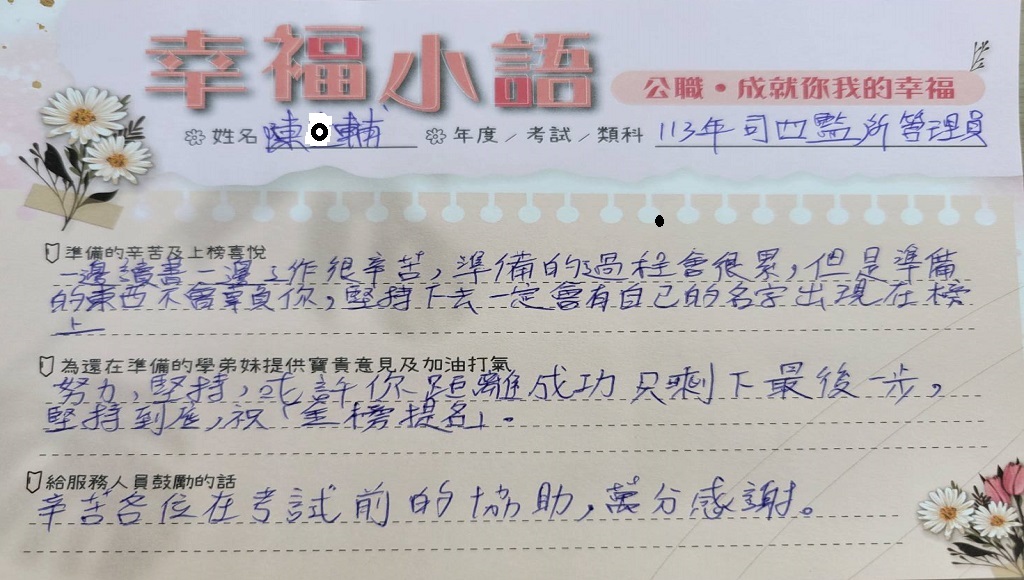 幸福小語
公職•成就你我的幸福
姓名 陳○輔 年度／考試／類科 113年司四監所管理員
準備的辛苦及上榜喜悅
一邊讀書一邊工作很辛苦，準備的過程會很累，但是準備
的東西不會辜負你，堅持下去一定會有自己的名字出現在榜
上
為還在準備的學弟妹提供寶貴意見及加油打氣
努力，堅持，或許你距離成功只剩下最後一步，
堅持到底，祝「金榜提名」。
給服務人員鼓勵的話
辛苦各位在考試前的協助，萬分感謝。